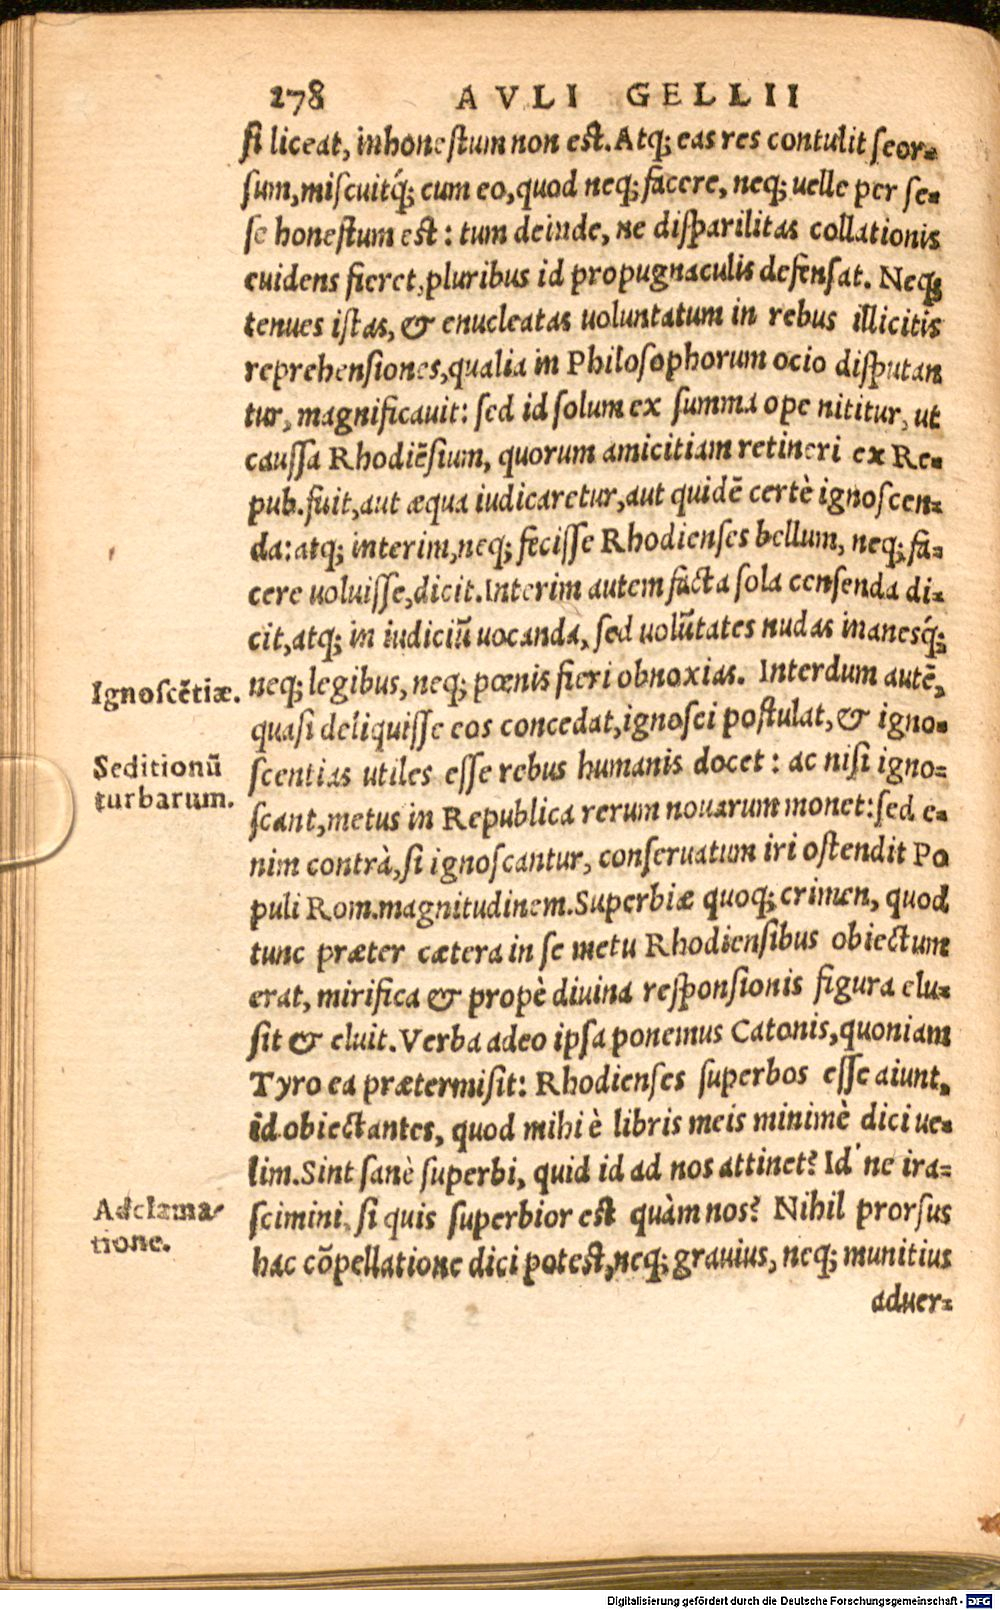 278 AVLI GELLII
si liceat, inhonestum non est. Atq; eas res contulit seor-
sum, miscuitq́; cum eo, quod neq; facere, neq; uelle per se-
se honestum est: tum deinde, ne disparilitas collationis
euidens fieret, pluribus id propugnaculis defensat. Neq;
tenues istas, & enucleatas uoluntatum in rebus illicitis
reprehensiones, qualia in Philosophorum ocio disputan
tur, magnificauit: sed id solum ex summa ope nititur, ut
caussa Rhodiēsium, quorum amicitiam retineri ex Re-
pub. fuit, aut æqua iudicaretur, aut quidē certè ignoscen-
da: atq; interim, neq; fecisse Rhodienses bellum, neq; fa-
cere uoluisse, dicit. Interim autem facta sola censenda di-
cit, atq; in iudiciū uocanda, sed uolūtates nudas inanesq́;
Ignoscētiæ. neq; legibus, neq; pœnis fieri obnoxias. Interdum autē,
quasi deliquisse eos concedat, ignosci postulat, & igno-
Seditionū scentias utiles esse rebus humanis docet: ac nisi igno-
turbarum. scant, metus in Republica rerum nouarum monet: sed e-
nim contrà, si ignoscantur, conseruatum iri ostendit Po
puli Rom. magnitudinem. Superbiæ quoq; crimen, quod
tunc præter cætera in se metu Rhodiensibus obiectum
erat, mirifica & propè diuina responsionis figura elu-
sit & eluit. Verba adeo ipsa ponemus Catonis, quoniam
Tyro ea prætermisit: Rhodienses superbos esse aiunt,
id obiectantes, quod mihi è libris meis minimè dici ue-
lim. Sint sanè superbi, quid id ad nos attinet? Id'ne ira-
Adclama- scimini, si quis superbior est quàm nos? Nihil prorsus
tione. hac cōpellatione dici potest, neq; grauius, neq; munitius
aduer-
Digitalisierung gefördert durch die Deutsche Forschungsgemeinschaft - DFG